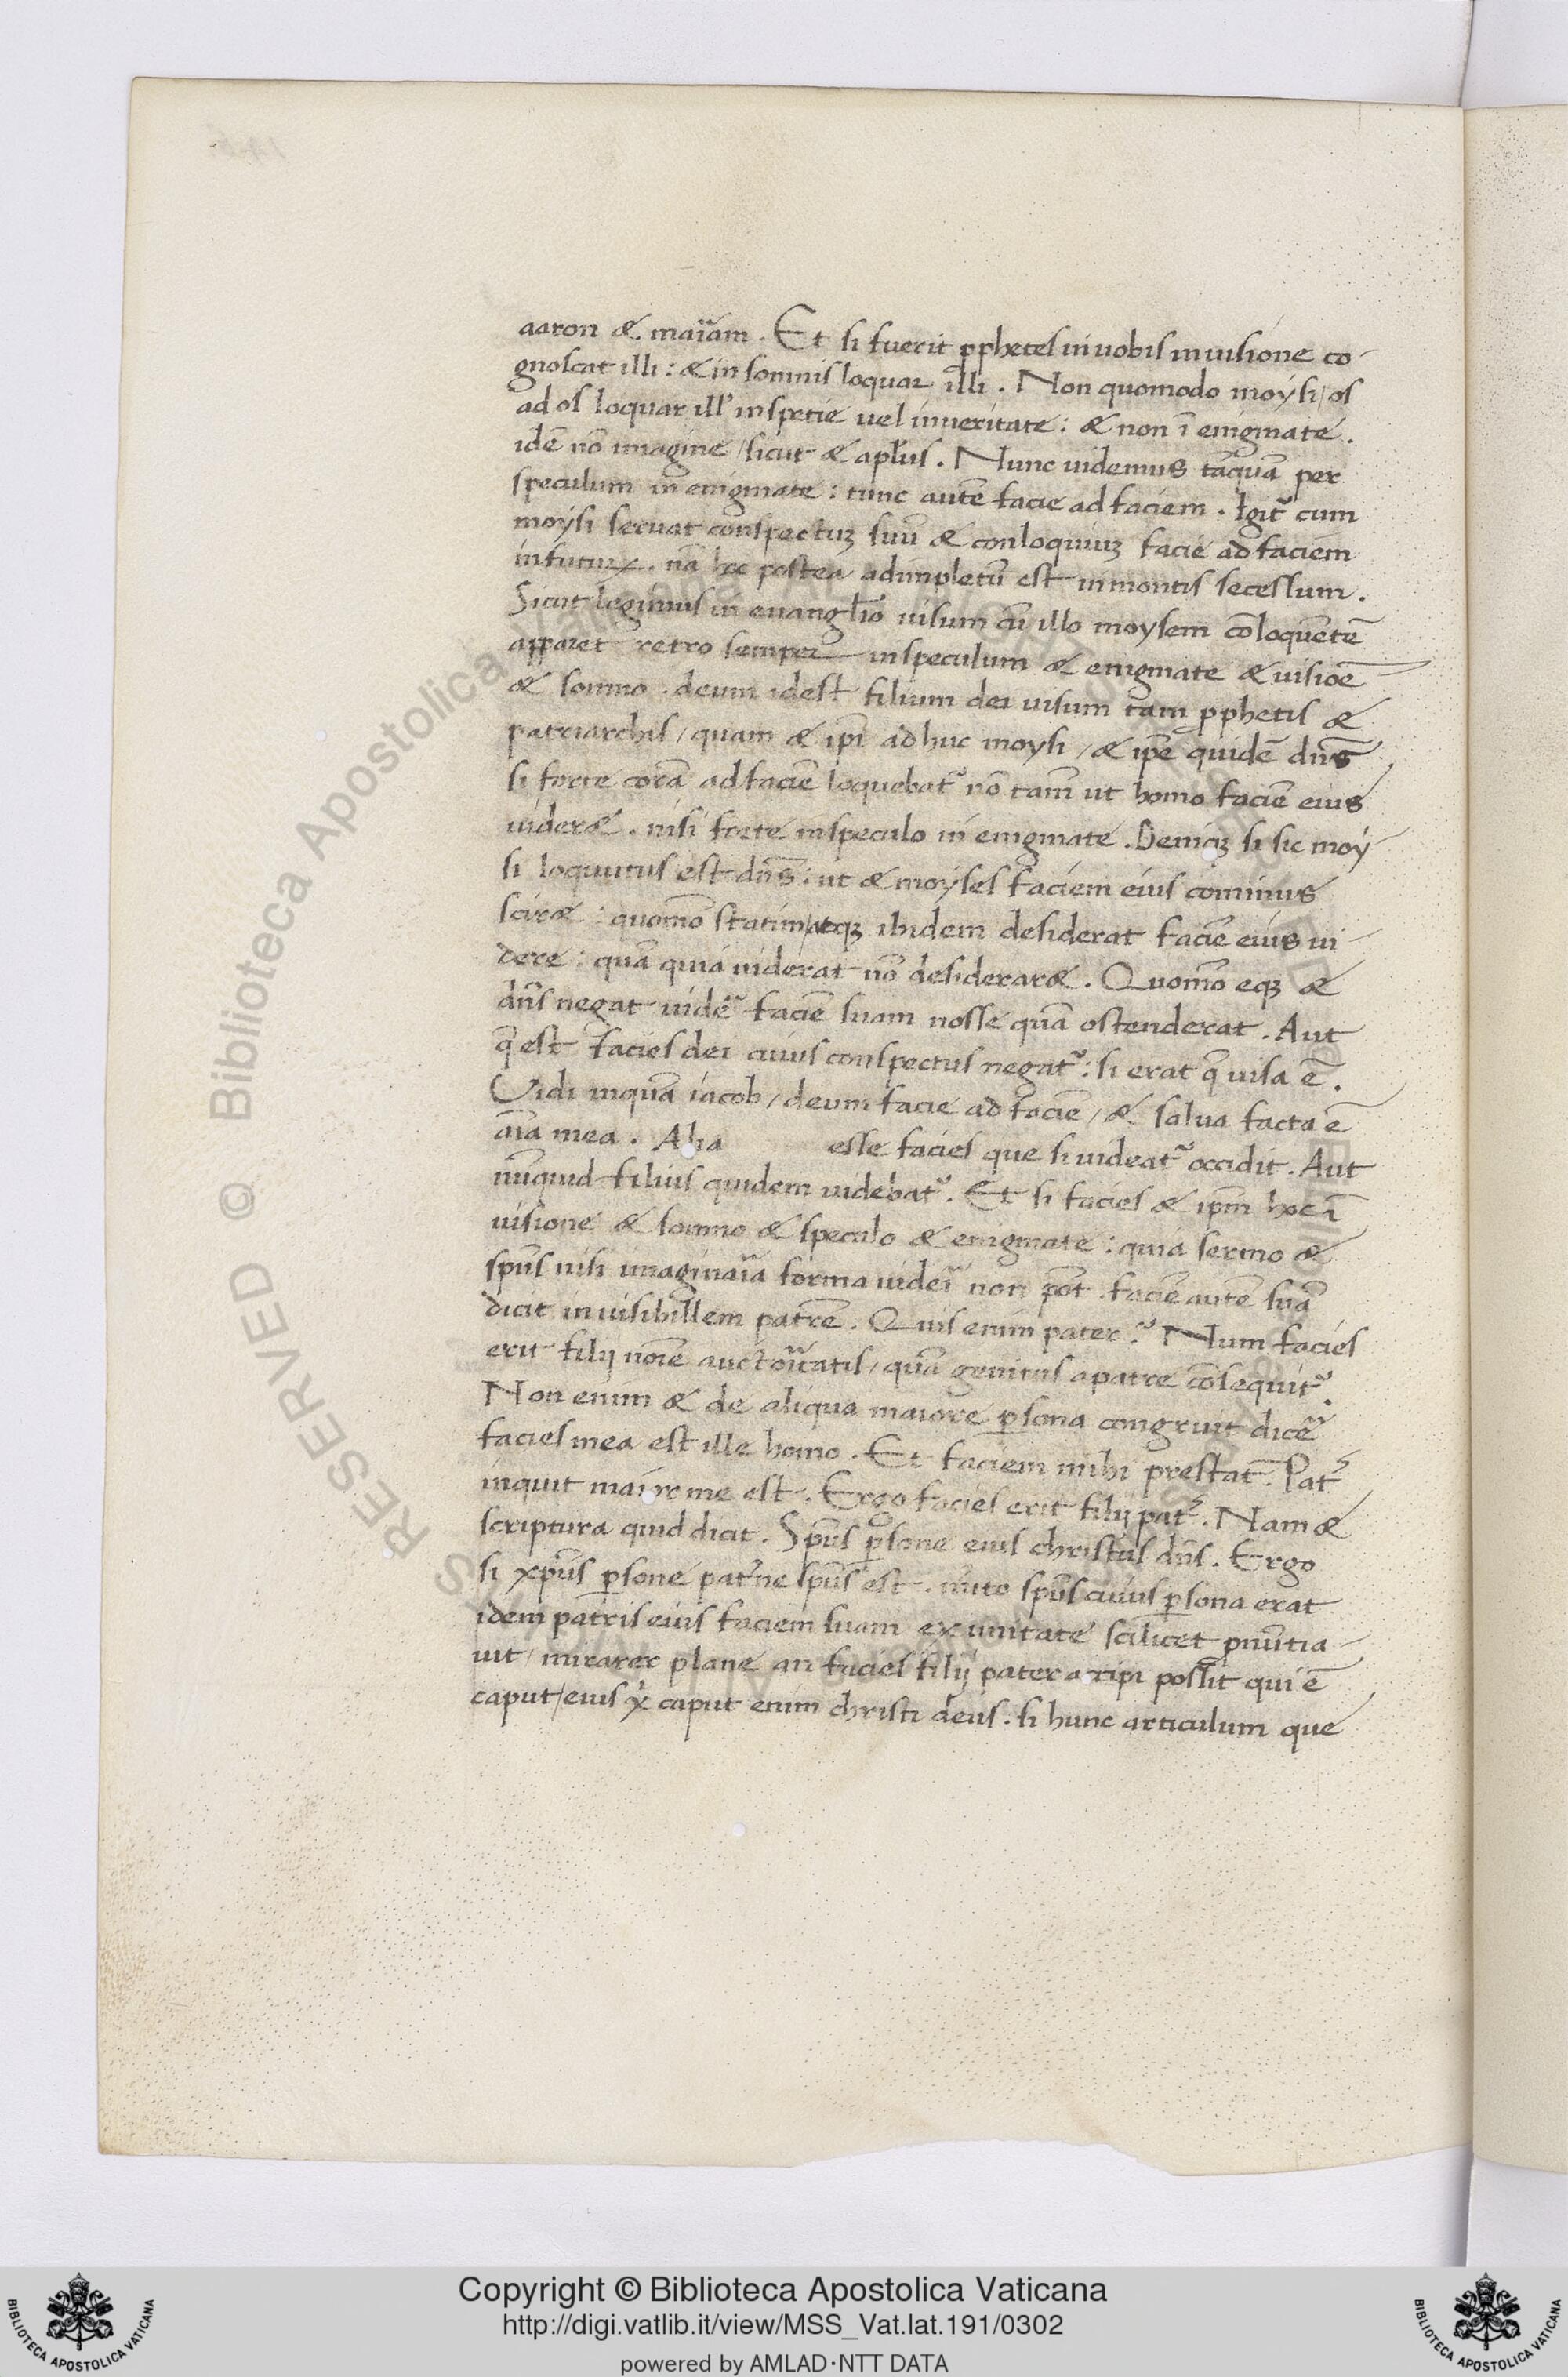 aaron & mariam. Et si fuerit ꝓphetes in uobis in uisione co-
gnoscat illi: & in somnis loquar illi. Non quomodo moysi/os
ad os loquar ill' in spetie uel in ueritate: & non ĩ enigmate.
idē nō imagine/sicut & apl̃us. Nunc uidemus tãquã per
speculum in enigmate: tunc autē facie ad faciem. Igit᷑ cum
moysi seruat conspectuꝫ suũ & conloquiuꝫ facie ad faciem
in futuꝝ. nã hec postea adimpletũ est in montis secessum.
Sicut legimus in euangl̃io uisum cũ illo moysem cõloquẽtẽ
apparet retro semper in speculum & enigmate & uisiõe
& somno. deum idest filium dei uisum tam ꝓphetis &
patriarchis/quam & ip̃i adhuc moysi/& ip̃e quidē dñs
si forte corã ad faciē loquebat᷑ nõ tam ut homo faciē eius
uider&. nisi forte in speculo in enigmate. Deniqꝫ si sic moy-
si loquutus est dñs: ut & moyses faciem eius cominus
scir&: quomõ statim/atqꝫ ibidem desiderat faciē eius ui-
dere: quã quia uiderat nõ desiderar&. Quomõ eqꝫ &
dñs negat uider̃ faciē suam nosse quã ostenderat. Aut
q̃ est facies dei cuius conspectus negat᷑: si erat q̃ uisa ē.
Uidi inquã iacob/deum facie ad faciē/& salua facta ē
aĩa mea. Alia esse facies que si uideat᷑ occidit. Aut
nũquid filius quidem uidebat᷑. Et si facies & ip̃m hoc ĩ
uisione & somno & speculo & enigmate: quia sermo &
sp̃us nisi imaginar̃ia forma uider̃i non põt. faciē autē suã
dicit inuisibillem patrẽ. Quis enim pater? Num facies
erit filij noĩe auctor̃itatis/quã genitus a patre cõsequit᷑.
Non enim & de aliqua maiore ꝑsona congruit dicer̃
facies mea est ille homo. Et faciem mihi prestat. Pat᷑
inquit maior me est. Ergo facies erit filij pat᷑. Nam &
scriptura quid dicit. Sp̃us ꝑsone eius christus dñs. Ergo
si xp̃us ꝑsone pat᷑ne sp̃us est. mito sp̃us cuius ꝑsona erat
idem patris eius faciem suam ex unitate scilicet ꝓnũtia-
uit/mirarer plane an facies filij pater accipi possit qui ē
caput/eius xp̃i caput enim christi deus. si hunc articulum que
Copyright © Biblioteca Apostolica Vaticana
http://digi.vatlib.it/view/MSS_Vat.lat.191/0302
powered by AMLAD·NTT DATA
BIBLIOTECA APOSTOLICA VATICANA
BIBLIOTECA APOSTOLICA VATICANA